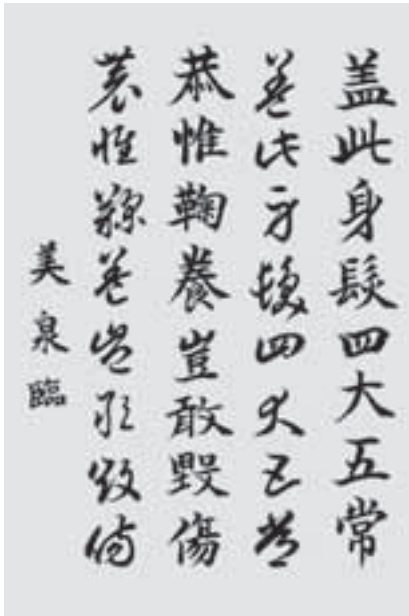 盖此身髮四大五常
盖此身髮四大五常
恭惟鞠養豈敢毀傷
恭惟鞠養豈敢毀傷
美泉臨